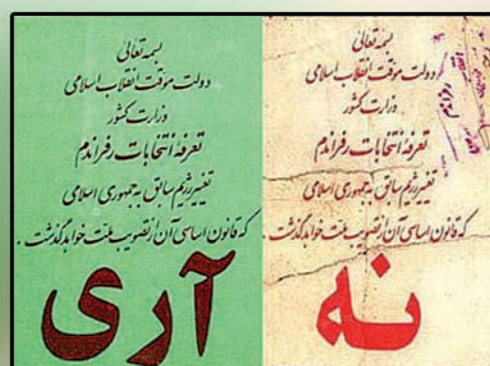 بسمه تعالی
دولت موقت انقلاب اسلامی
وزارت کشور
تعرفه انتخابات رفراندم
تغییر رژیم سابق به جمهوری اسلامی
که قانون اساسی آن از تصویب ملت خواهد گذشت .
نه
بسمه تعالی
دولت موقت انقلاب اسلامی
وزارت کشور
تعرفه انتخابات رفراندم
تغییر رژیم سابق به جمهوری اسلامی
که قانون اساسی آن از تصویب ملت خواهد گذشت .
آری